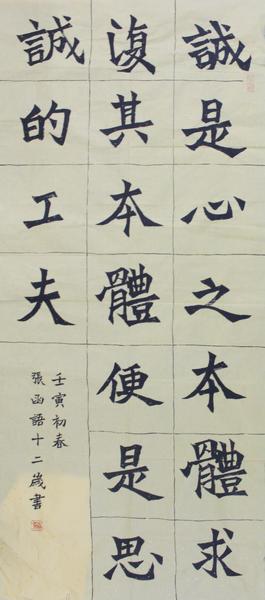 誠是心之本體求
復其本體便是思
誠的工夫
壬寅初春
張函語十二歲書